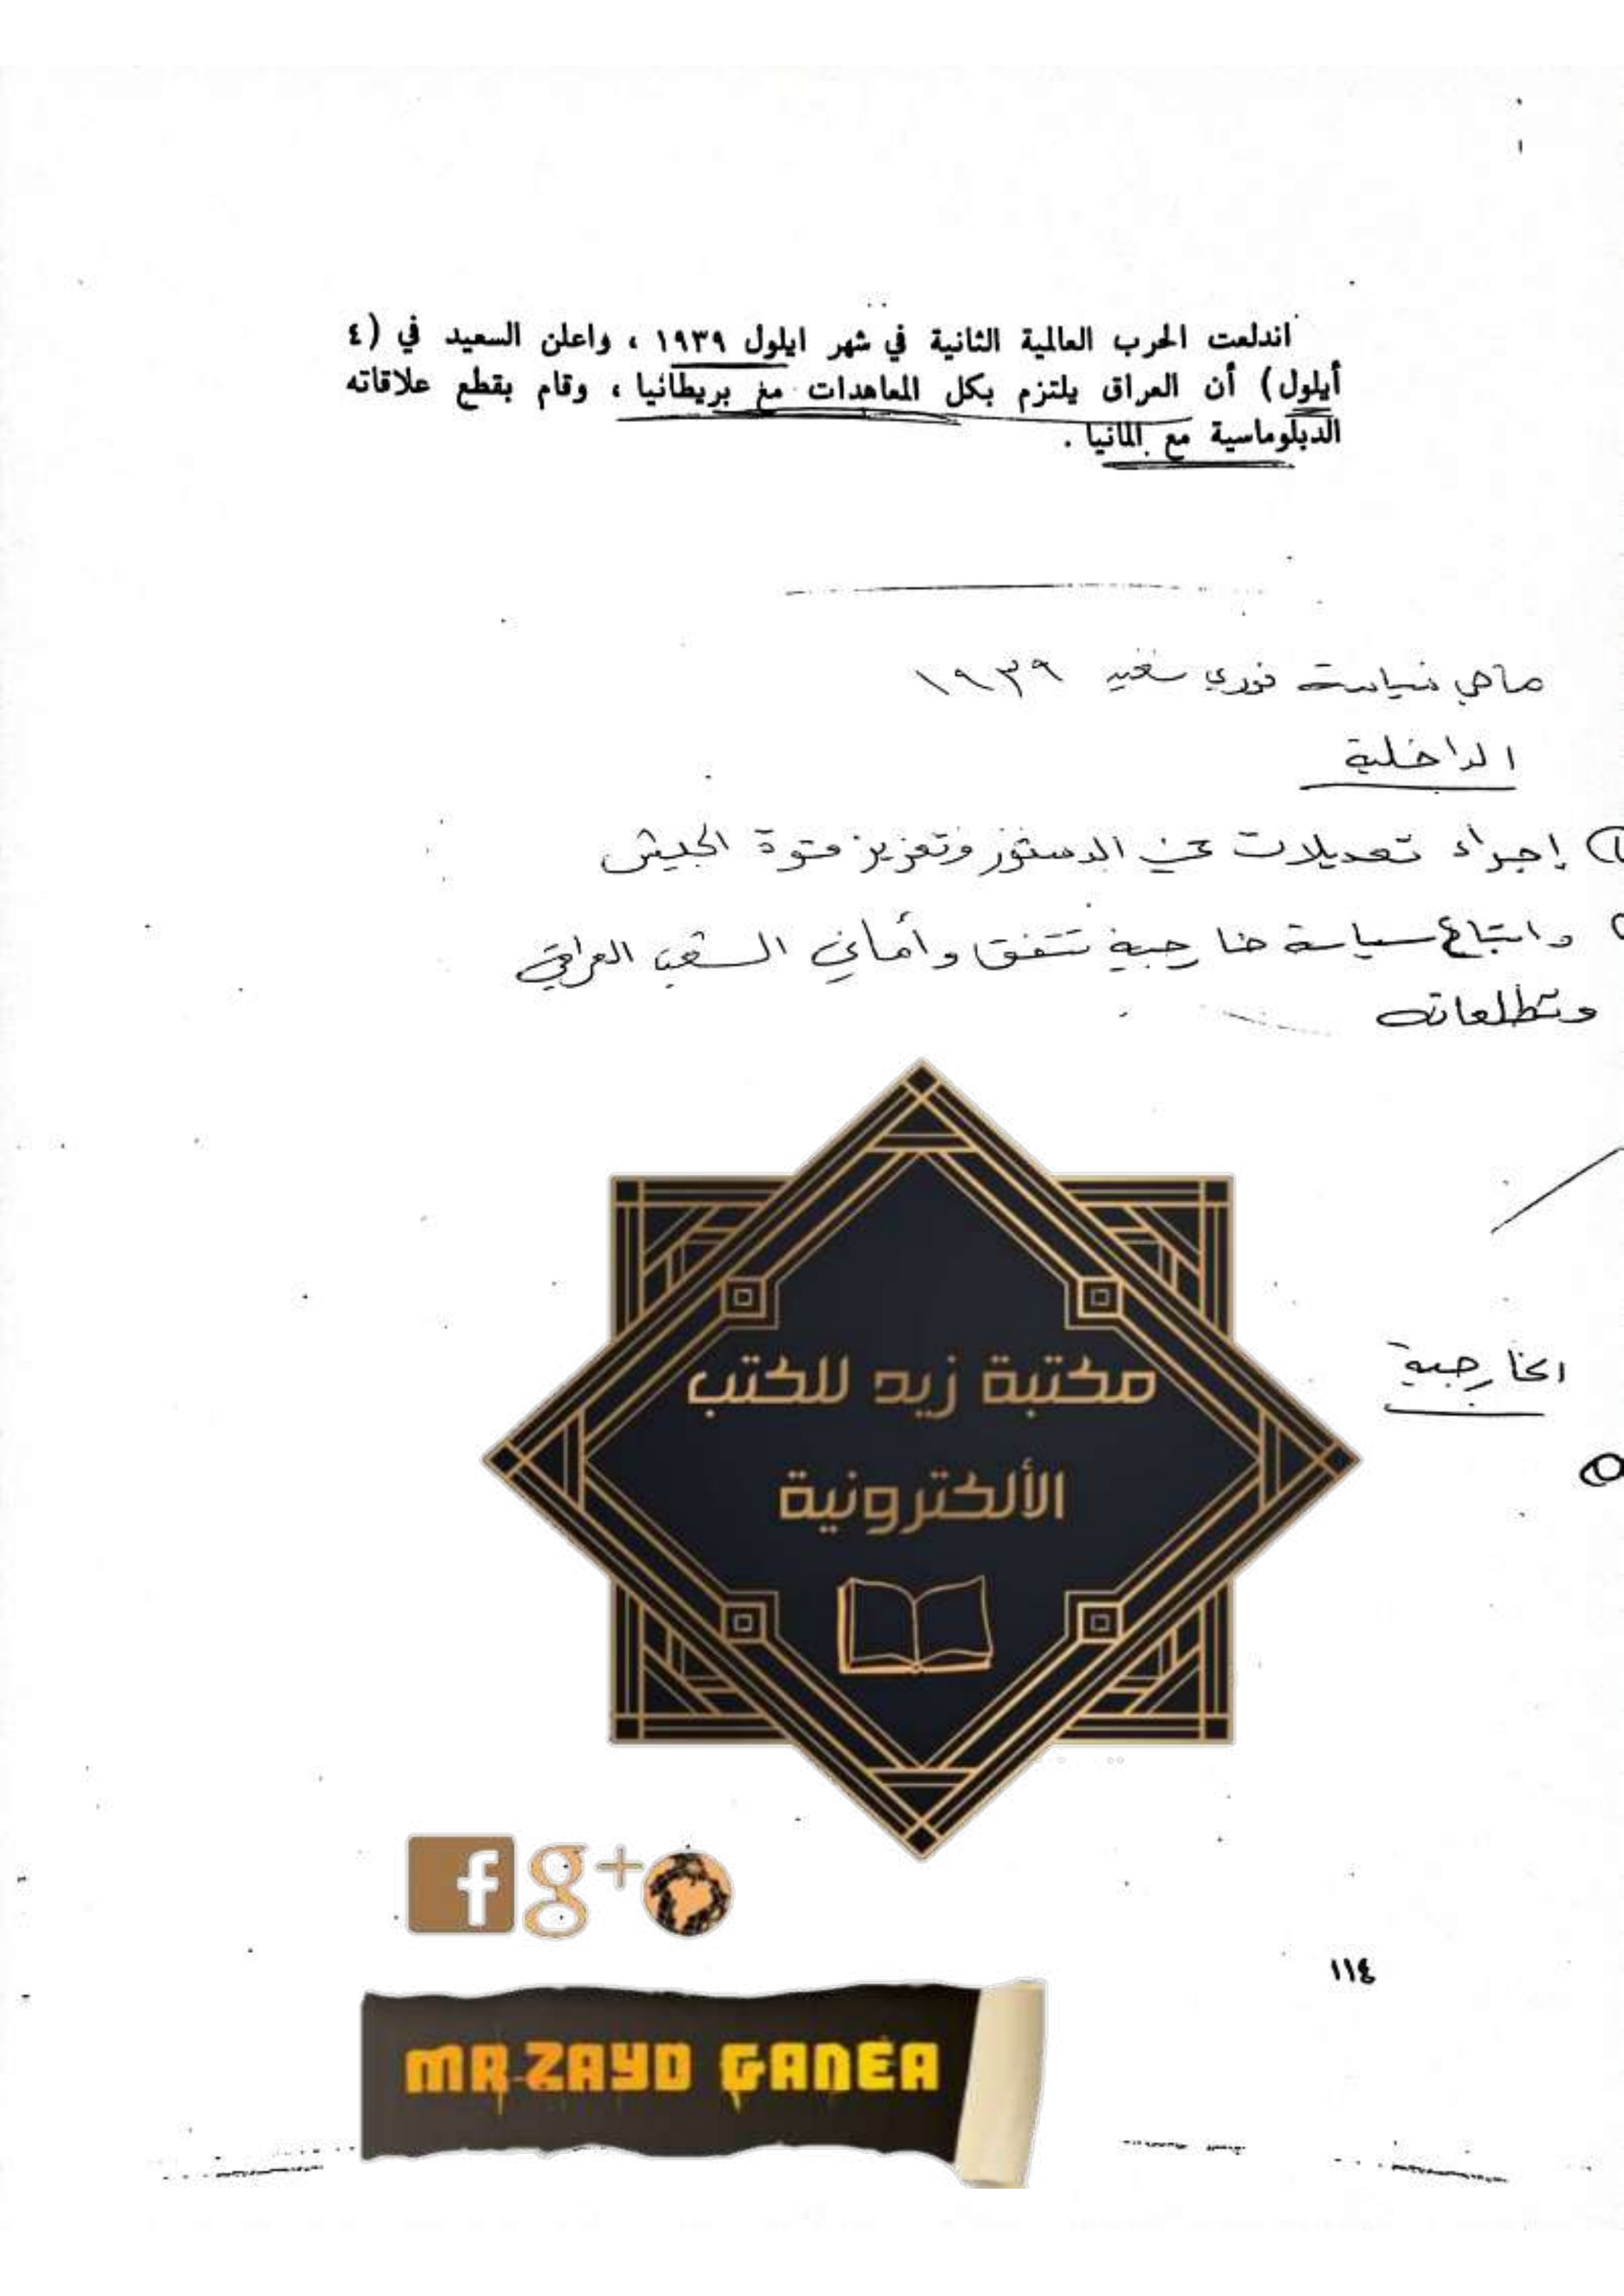 اندلعت الحرب العالمية الثانية في شهر ايلول ١٩٣٩ ، واعلن السعيد في (٤
أيلول) أن العراق يلتزم بكل المعاهدات مع بريطانيا ، وقام بقطع علاقاته
الدبلوماسية مع المانيا .
ماهي سياسة نوري سعيد ١٩٣٩
الداخلية
① إجراء تعديلات على الدستور وتعزيز قوة الجيش
واتباع سياسة خارجية تتفق وأماني الشعب العراقي
وتطلعاته
الخارجية
①
مكتبة زيد للكتب
الألكترونية
f g+
١١٤
MR-ZAYD GANEA